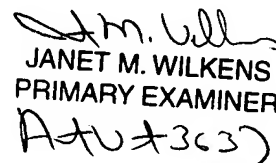 JANET M. WILKENS
PRIMARY EXAMINER
AtUt 3637